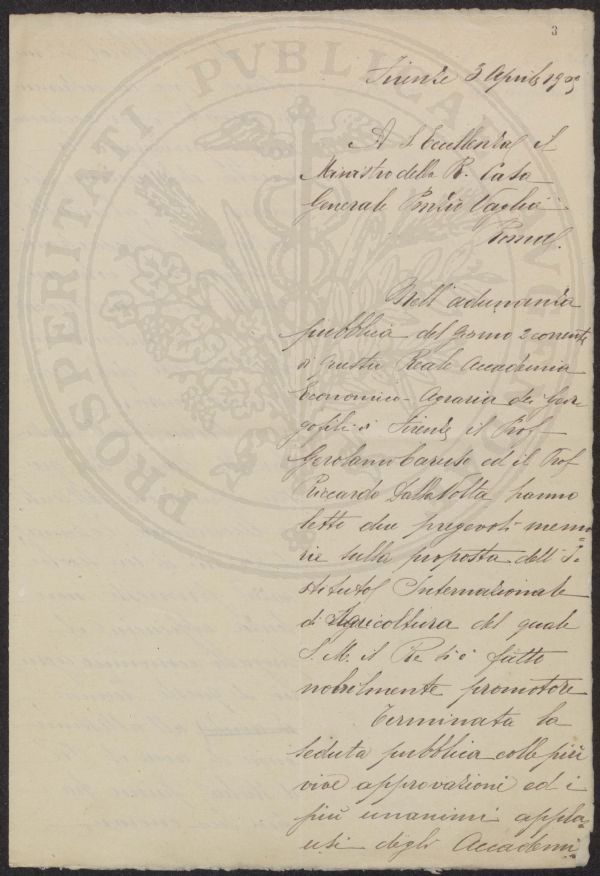 3
Firenze 3 Aprile 1905
A S. Eccellenza Il
Ministro della R. Casa
Generale Emilio Vaglio
Roma
Nell'adunanza
pubblica del giorno 2 corrente
di questa Reale Accademia
Economico-Agraria dei Geor-
gofili di Firenze il Prof
Gerolamo Caruso ed il Prof
Riccardo Dalla Volta hanno
letto due pregevoli memo=
rie sulla proposta dell'I-
stituto Internazionale
di Agricoltura del quale
S. M. il Re si è fatto
nobilmente promotore
Terminata la
seduta pubblica colle più
vive approvazioni ed i
più unanimi applau=
si degli Accademi
PROSPERITATI PUBLICAE AUGENDAE